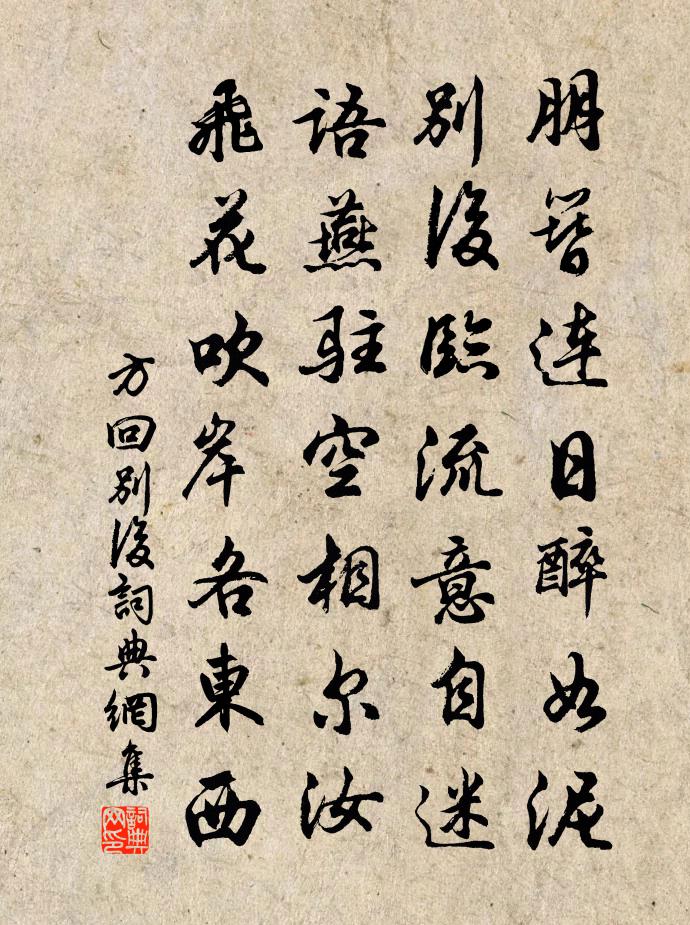 朋簪連日醉如泥
別後臨流意自迷
語燕駐空相尔汝
飛花吹岸各東西
方回別後詞典網集
詞典网印